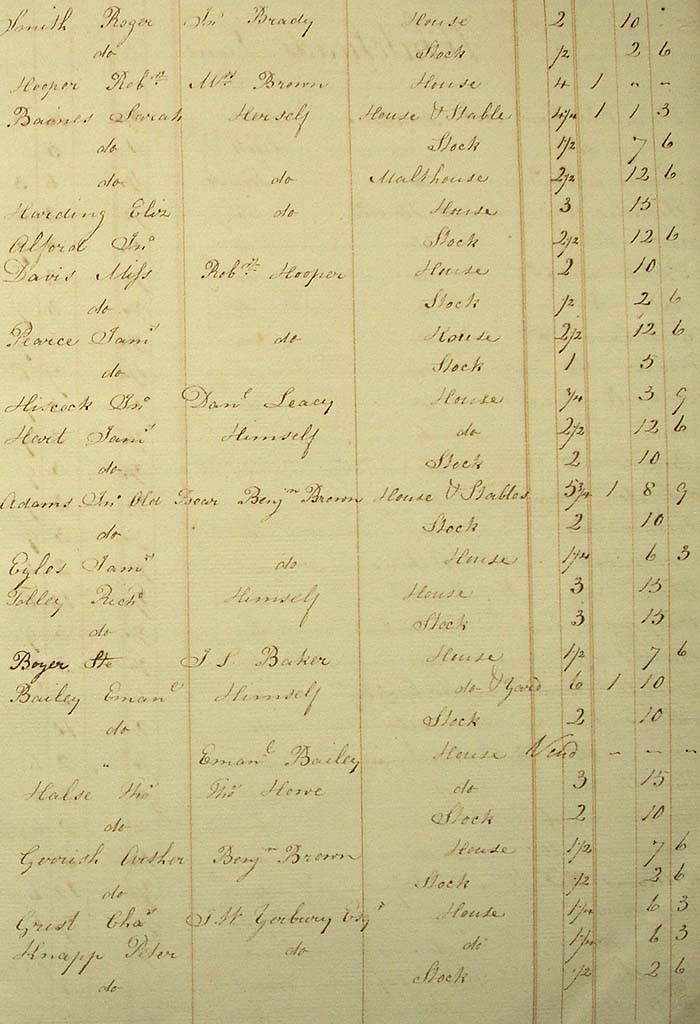 Smith Roger Jnº Brady House 2 10
do Stock 1/2 2 6
Hooper Robt Mrs Brown House 4 1 - -
Baines Sarah Herself House & Stable 4 1/4 1 1 3
do Stock 1 1/2 7 6
do do Malthouse 2 1/2 12 6
Harding Eliz do House 3 15
Alford Jnº Stock 2 1/2 12 6
Davis Miss Robt Hooper House 2 10
do Stock 1/2 2 6
Pearce Jams do House 2 1/2 12 6
do Stock 1 5
Hiscock Jnº Danl Leacy House 3/4 3 9
Hart Jams Himself do 2 1/2 12 6
do Stock 2 10
Adams Jnº Old Bear Benjn Brown House & Stables 5 3/4 1 8 9
do Stock 2 10
Eyles Jams do House 1 1/4 6 3
Tolley Richd Himself House 3 15
do Stock 3 15
Boyer Ste J S Baker House 1 1/2 7 6
Bailey Emanl Himself do & Yard 6 1 10
do Stock 2 10
" Emanl Bailey House Void - - -
Halse Thos Thos Howe do 3 15
do Stock 2 10
Gerrish Benjn Brown House 1 1/2 7 6
do Stock 1/2 2 6
Grist Chas J. W. Yerbury Esqr House 1 1/4 6 3
Knapp Peter do do 1 1/4 6 3
do Stock 1/2 2 6